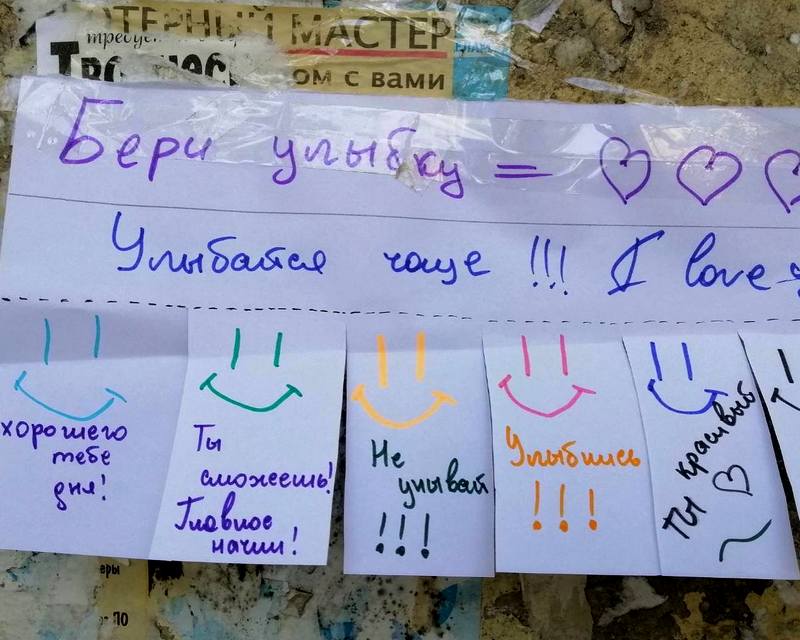 ТЕРНЫЙ МАСТЕР
ом с вами
Бери улыбку =
Улыбайся чаще !!! I love
хорошего
тебе
дня!
Ты
сможешь!
Главное
начни!
Не
унывай
!!!
Улыбнись
!!!
Ты красивый
еры
ПО